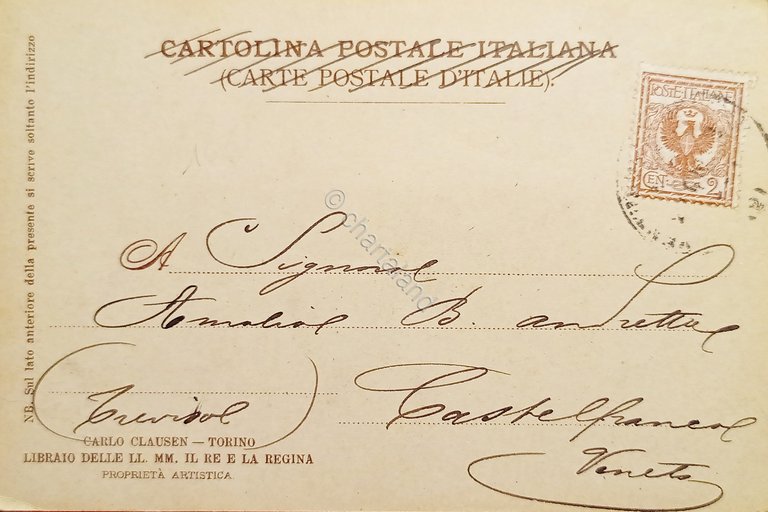 CARTOLINA POSTALE ITALIANA
(CARTE POSTALE D'ITALIE).
POSTE ITALIANE
CEN. 2
NB. Sul lato anteriore della presente si scrive soltanto l'indirizzo
© chartaland
A Signora
Amalia B. Andretta
(Treviso)
Castelfranco
Veneto
CARLO CLAUSEN — TORINO
LIBRAIO DELLE LL. MM. IL RE E LA REGINA
PROPRIETÀ ARTISTICA